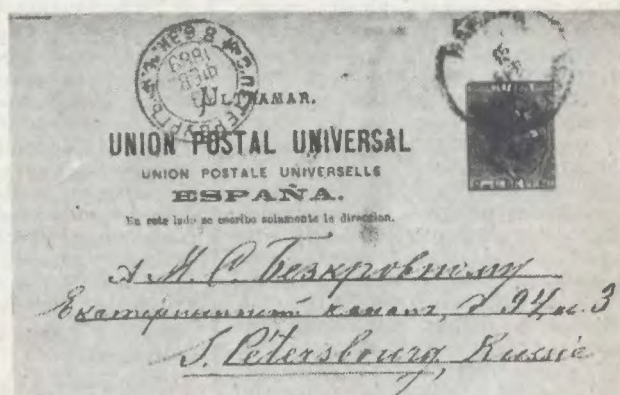 ULTRAMAR.
UNION POSTAL UNIVERSAL
UNION POSTALE UNIVERSELLE
ESPAÑA.
En este lado se escribe solamente la direccion.
М. С. Безкровному
Екатерининский канал, д 94, кв. 3
S. Pétersbourg, Russie